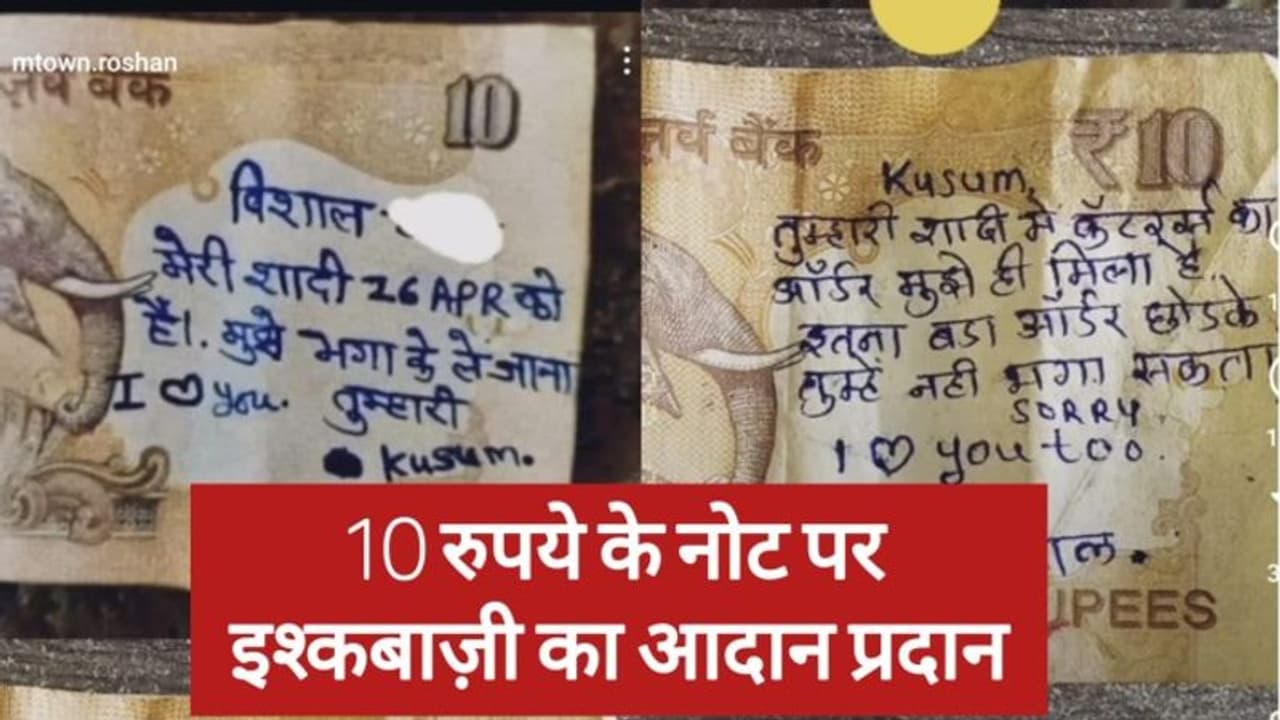 mtown.roshan
ज़र्व बैंक
10
विशाल
मेरी शादी 26 APR को
है।. मुझे भगा के ले जाना
I ♡ you. तुम्हारी
Kusum.
र्व बैंक
₹10
Kusum,
तुम्हारी शादी मे कॅटरर्स का
ऑर्डर मुझे ही मिला है..
इतना बडा ऑर्डर छोडके
तुम्हें नही भगा सकता
SORRY.
I ♡ you too.
ाल.
UPEES
10 रुपये के नोट पर
इश्कबाज़ी का आदान प्रदान